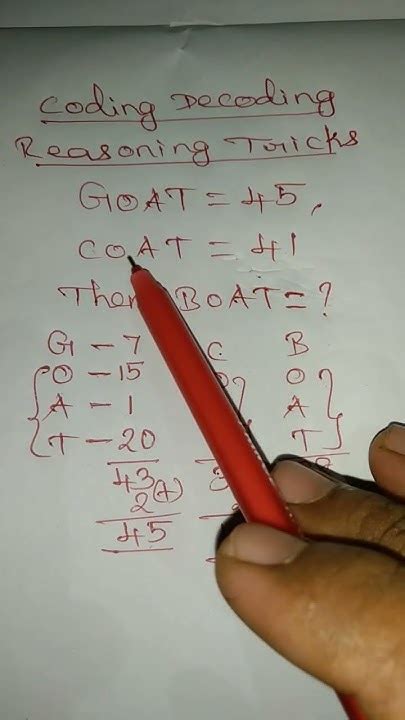 Coding Decoding
Reasoning Tricks
GOAT = 45,
COAT = 41
BOAT = ?
G - 7 C B
O - 15 O
A - 1 A
T - 20 T
43
2 (+)
45